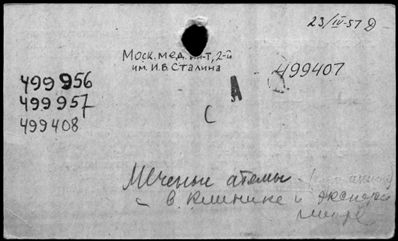 23/IV-57 Д
Моск. мед. ин-т, 2-й
им. И.В. Сталина
499407
499956
499957
499408
А
С
Меченые атомы
в клинике и экспери
менте